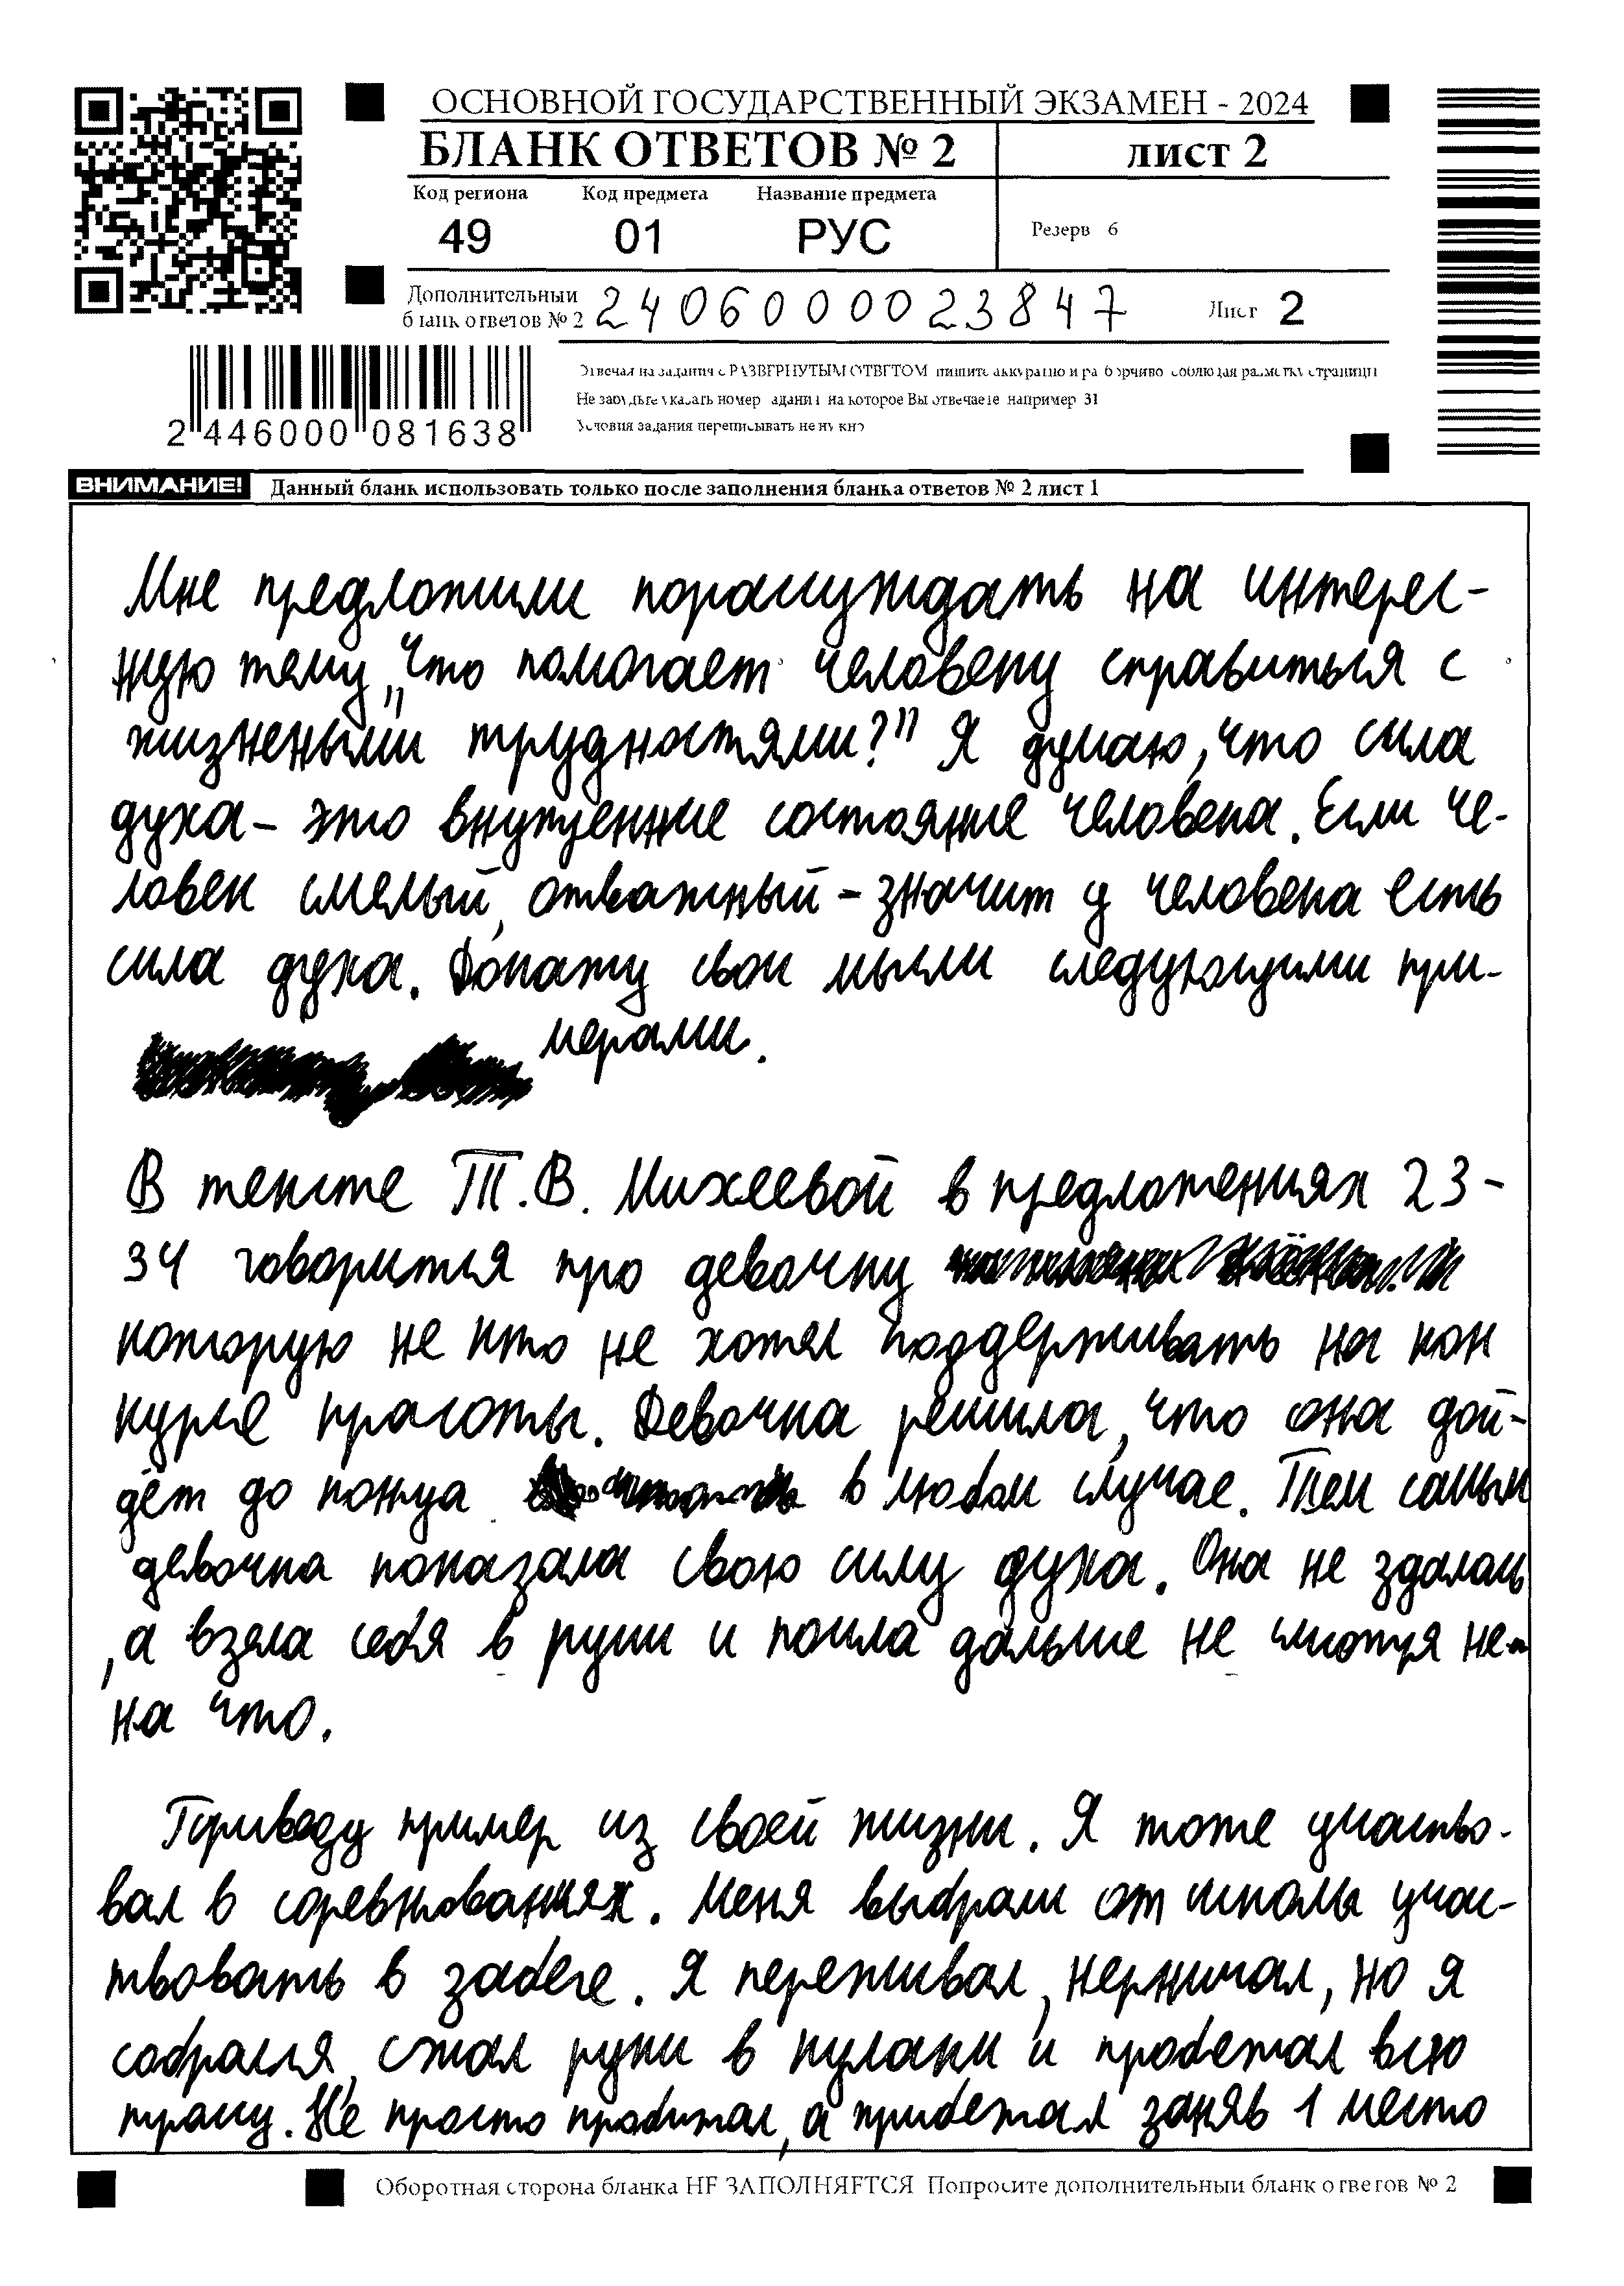 ОСНОВНОЙ ГОСУДАРСТВЕННЫЙ ЭКЗАМЕН - 2024
БЛАНК ОТВЕТОВ № 2 лист 2
Код региона Код предмета Название предмета
49 01 РУС Резерв 6
Дополнительный
бланк ответов № 2 2406000023847 Лист 2
Отвечая на задания с РАЗВЕРНУТЫМ ОТВЕТОМ пишите аккуратно и разборчиво соблюдая разметку страницы
Не забудьте указать номер задания на которое Вы отвечаете например 31
Условия задания переписывать не нужно
2 446000 081638
ВНИМАНИЕ! Данный бланк использовать только после заполнения бланка ответов № 2 лист 1
Мне предложили порассуждать на интерес-
ную тему „Что помогает человеку справиться с
жизнеными трудностями?" Я думаю, что сила
духа – это внутренние состояние человека. Если че-
ловек смелый, отважный – значит у человека есть
сила духа. Докажу свои мысли следующими при-
мерами.
В тексте Т.В. Михеевой в предложениях 23-
34 говорится про девочку
которую не кто не хотел поддерживать на кон
курсе красоты. Девочка решила, что она дой-
дёт до конца в любом случае. Тем самым
девочка показала свою силу духа. Она не здалась
, а взела себя в руки и пошла дальше не смотря не-
на что.
Приведу пример из своей жизни. Я тоже участво-
вал в соревнованиях. Меня выбрали от школы учас-
твовать в забеге. Я переживал, нервничал, но я
собрался, сжал руки в кулаки и пробежал всю
трассу. Не просто пробижал, а прибежал заняв 1 место
Оборотная сторона бланка НЕ ЗАПОЛНЯЕТСЯ Попросите дополнительный бланк ответов № 2